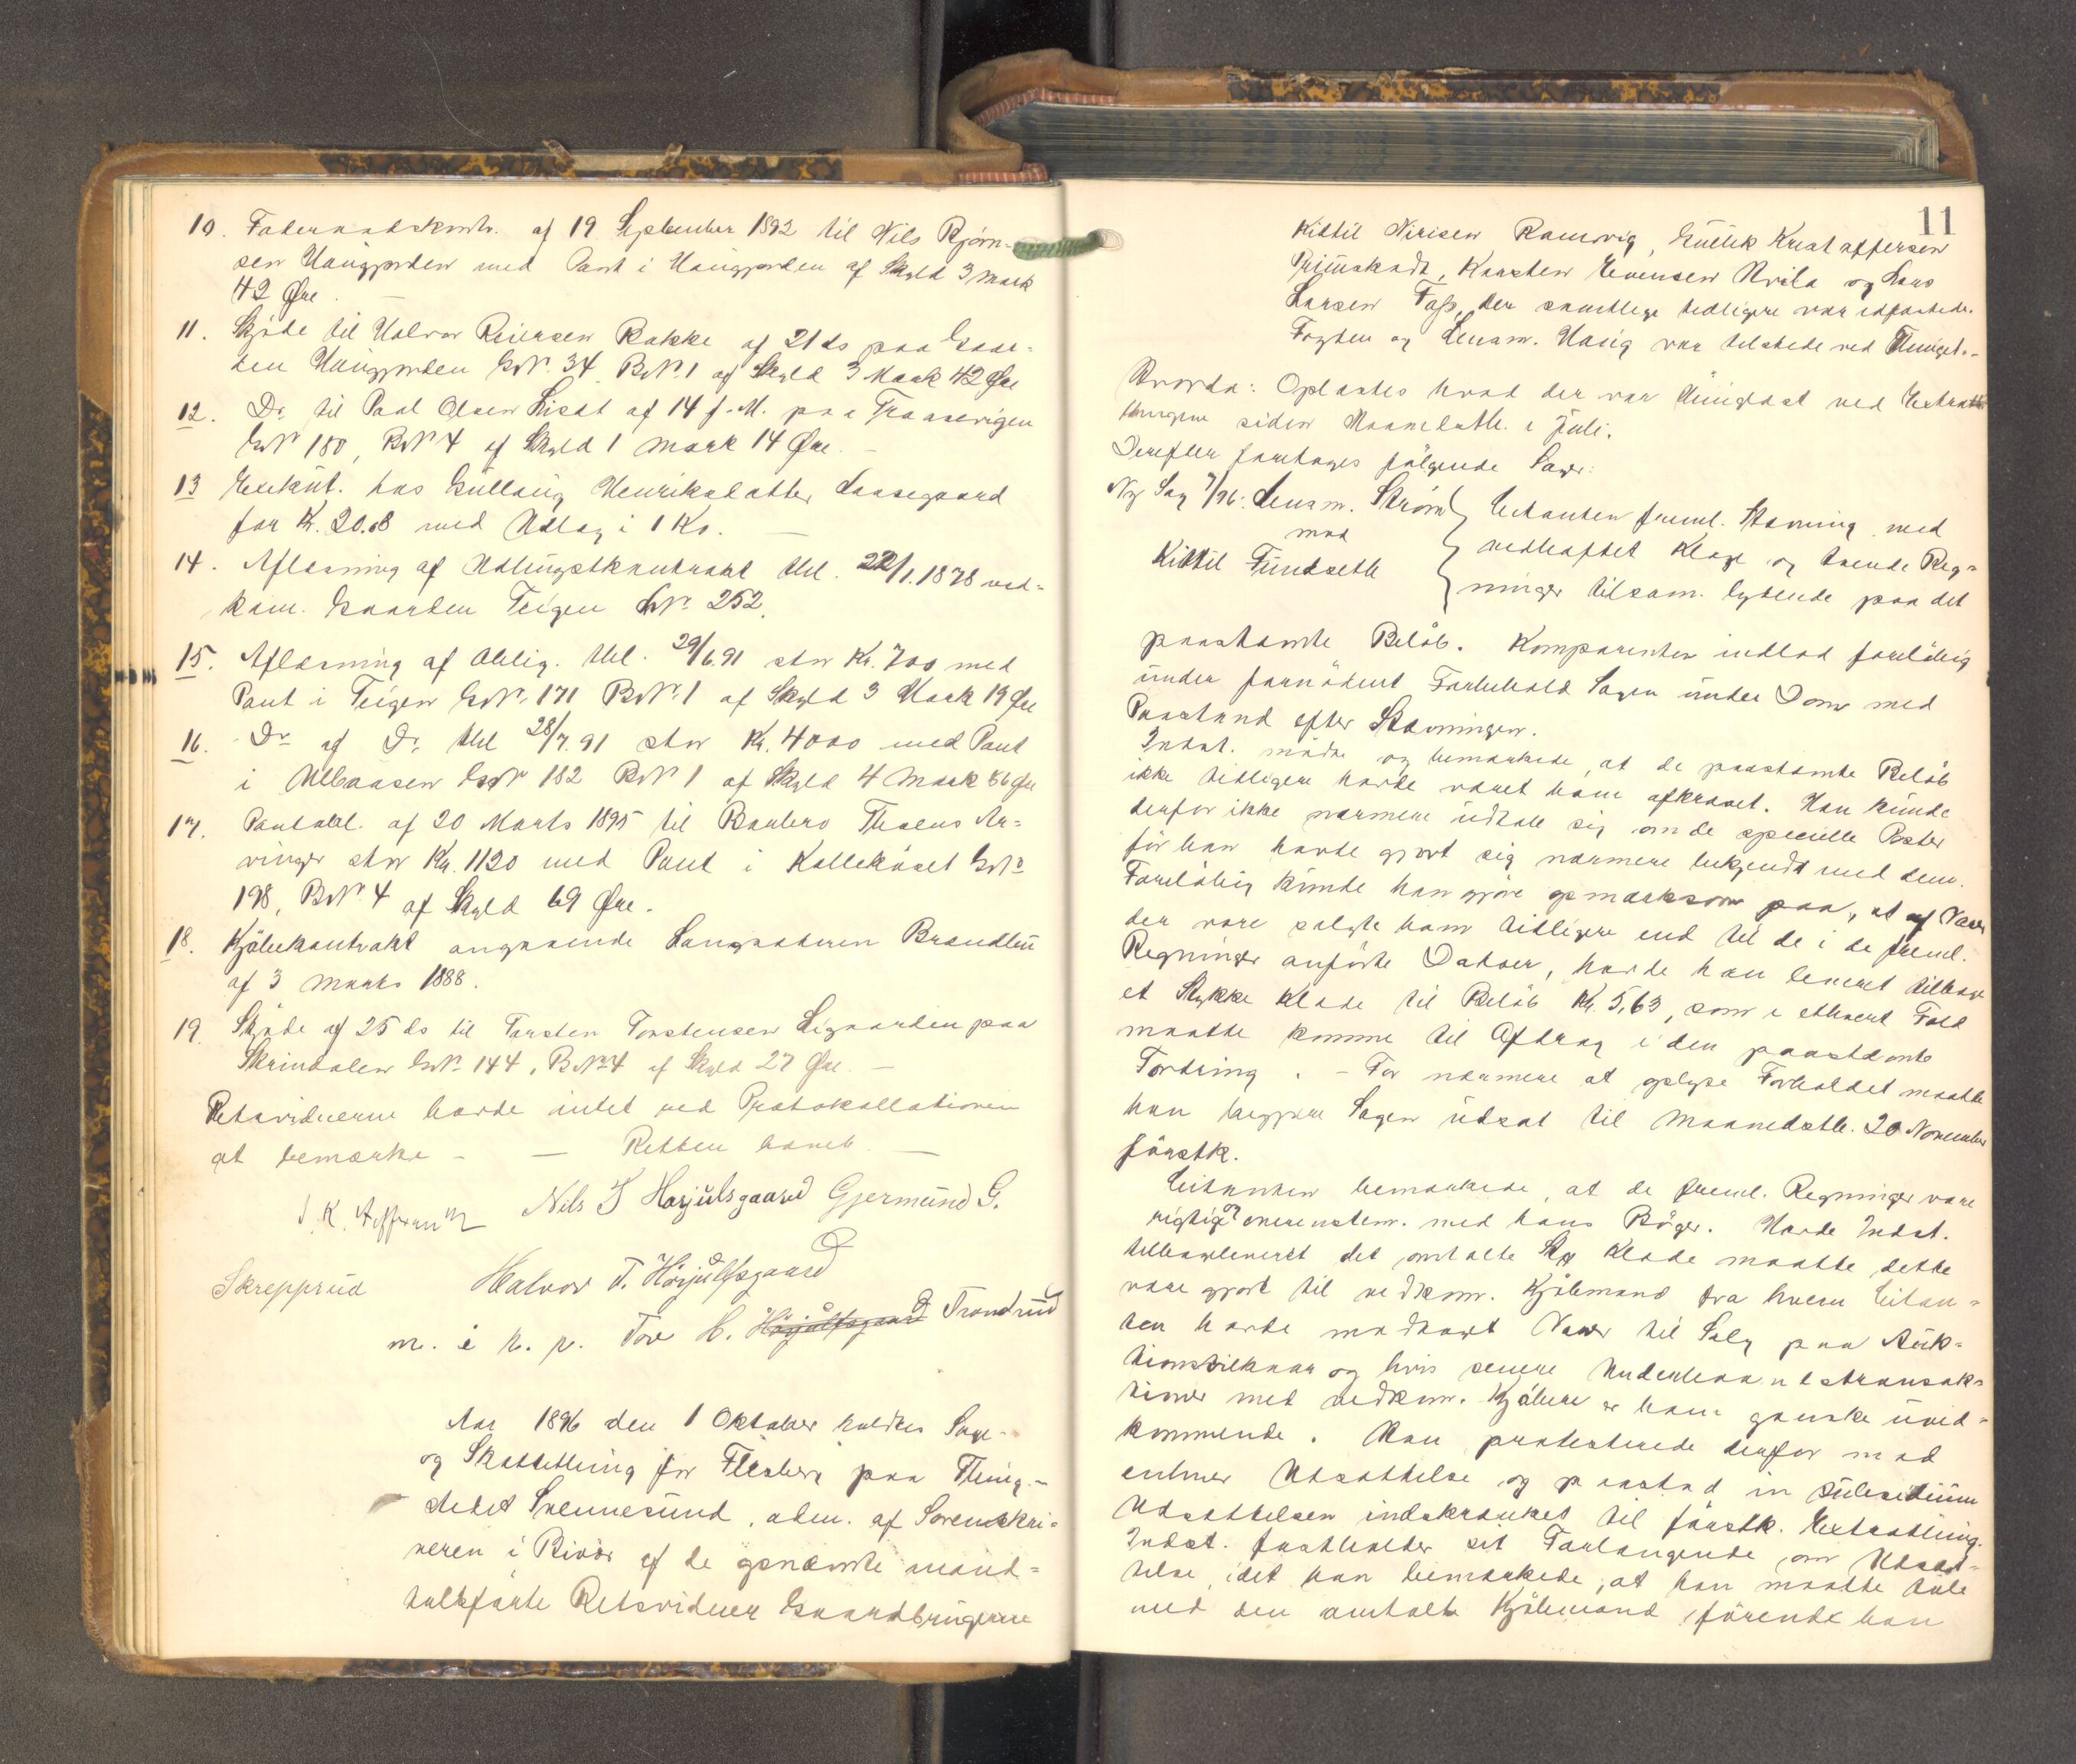 10. Føderaadskontr. af 19 September 1892 til Nils Bjørn-
sen Haugjorden med Pant i Haugjorden af Skyld 3 Mark
42 Øre.
11. Skjøde til Halvor Reiersen Bakke af 21 ds paa Gaar-
den Haugjorden GrNr. 34 BrNr. 1 af Skyld 3 Mark 42 Øre
12. Do. til Paal Olsen Listt af 14 f. M. paa
GrNr 180, BrNr 4 af Skyld 1 Mark 14 Øre. -
13 Exekut. hos Gullaug Henriksdatter Laasegaard
for Kr. 20.08 med Udlæg i 1 Ko. -
14. Aflæsning af Udlingstkontrakt thl. 22/1.1878 ved-
kom. Gaarden Teigen LNr. 252.
15. Aflæsning af Oblig. thl. 29/6.91 stor Kr. 700 med
Pant i Teigen GrNr. 171 BrNr. 1 af Skyld 3 Mark 19 Øre
16. Do af Do. thl 28/7.91 stor Kr. 4000 med Pant
i Ulbaasen GrNr 182 BrNr 1 af Skyld 4 Mark 86 Øre
17. Pantobl. af 20 Marts 1895 til Barbro Thoens Ar-
vinger stor Kr. 1120 med Pant i GrNo
198, BrNr. 4 af Skyld 69 Øre.
18. Kjøbekontrakt angaaende Langsæteren Brændliu
af 3 Marts 1888.
19. Skjøde af 25 ds til Torsten Torstensen Ligaarden paa
Skrindalen GrNr. 144, BrNr 4 af Skyld 27 Øre. -
Retsvidnerne havde intet ved Protokollationen
at bemærke - - Retten hævet. -
Nils T Horjulsgaard Gjermund G.
Skrepprud Halvor T. Hörjulfsgaard
m. i h. p. Tore H. Hörjulfsgaard Trondrud
Aar 1896 den 1 Oktober holdtes Sage-
og Skattething for Flesberg paa Thing-
stedet Svennesund, adm. af Sorenskri-
veren i Bivär af de opnævnte mand-
talsførte Retsvidner Gaardbrugerne
11
Kittil Nirisen Ramvig, Gullik Kristoffersen
Juvenskadt, Karsten Evensen Kvila og Lars
Larsen Foss, der samtlige tidligere var edfæstede.
Fogden og Lensm. Haug var tilstede ved Thinget. -
Hvorda: Oplæstes hvad der var thinglæst ved Extrath-
thingene siden Maanedsth. i Juli.
Derefter foretages følgende Sager:
Ny Sag 7/96. Lensm. Strøm Citanten freml. Stævning med
mod vedheftet Klage og tvende Reg-
Kittil Fundseth ninger tilsam. lydende paa det
paastævnte Beløb. Komparenten indlod foreløbig
under fornødent Forbehold Sagen under Dom med
Paastand efter Stævningen.
Indst. mødte og bemærkede, at de paastævnte Beløb
ikke tidligere havde været ham afkrævet. Han kunde
derfor ikke nærmere udtale sig om de specielle Poster
før han havde gjort sig nærmere bekjendt med dem.
Foreløbig kunde han gjøre opmærksom paa, at af Varer
der vare solgte ham tidligere end til de i de freml.
Regninger anførte Datoer, havde han leveret tilbage
et Stykke Klæde til Beløb Kr. 5,63, som i ethvert Fald
maatte komme til Afdrag i den paastævnte
Fordring. - For nærmere at oplyse Forholdet maatte
han begjære Sagen udsat til Maanedsth. 20 November
førstk.
Citanten bemærkede, at de freml. Regninger vare
rigtige og overenstem. med hans Bøger. Havde Indst.
tilbageleveret det omtalte Sty Klæde maatte dette
være gjort til vedkom. Kjøbmand fra hvem Citan-
ten havde modtaget Varer til Salg paa Auk-
tionsvilkaar og hvis senere Underhaandstransak-
tioner med vedkom. Kjøbere er ham ganske uved-
kommende. Han protesterede derfor mod
enhver Udsættelse og paastod in subsidium
Udsættelsen indskrænket til førstk. Extrathing.
Indst. fastholder sit Forlangende om Udsæt-
telse, idet han bemærkede, at han maatte tale
med den omtalte Kjøbmand, førend han